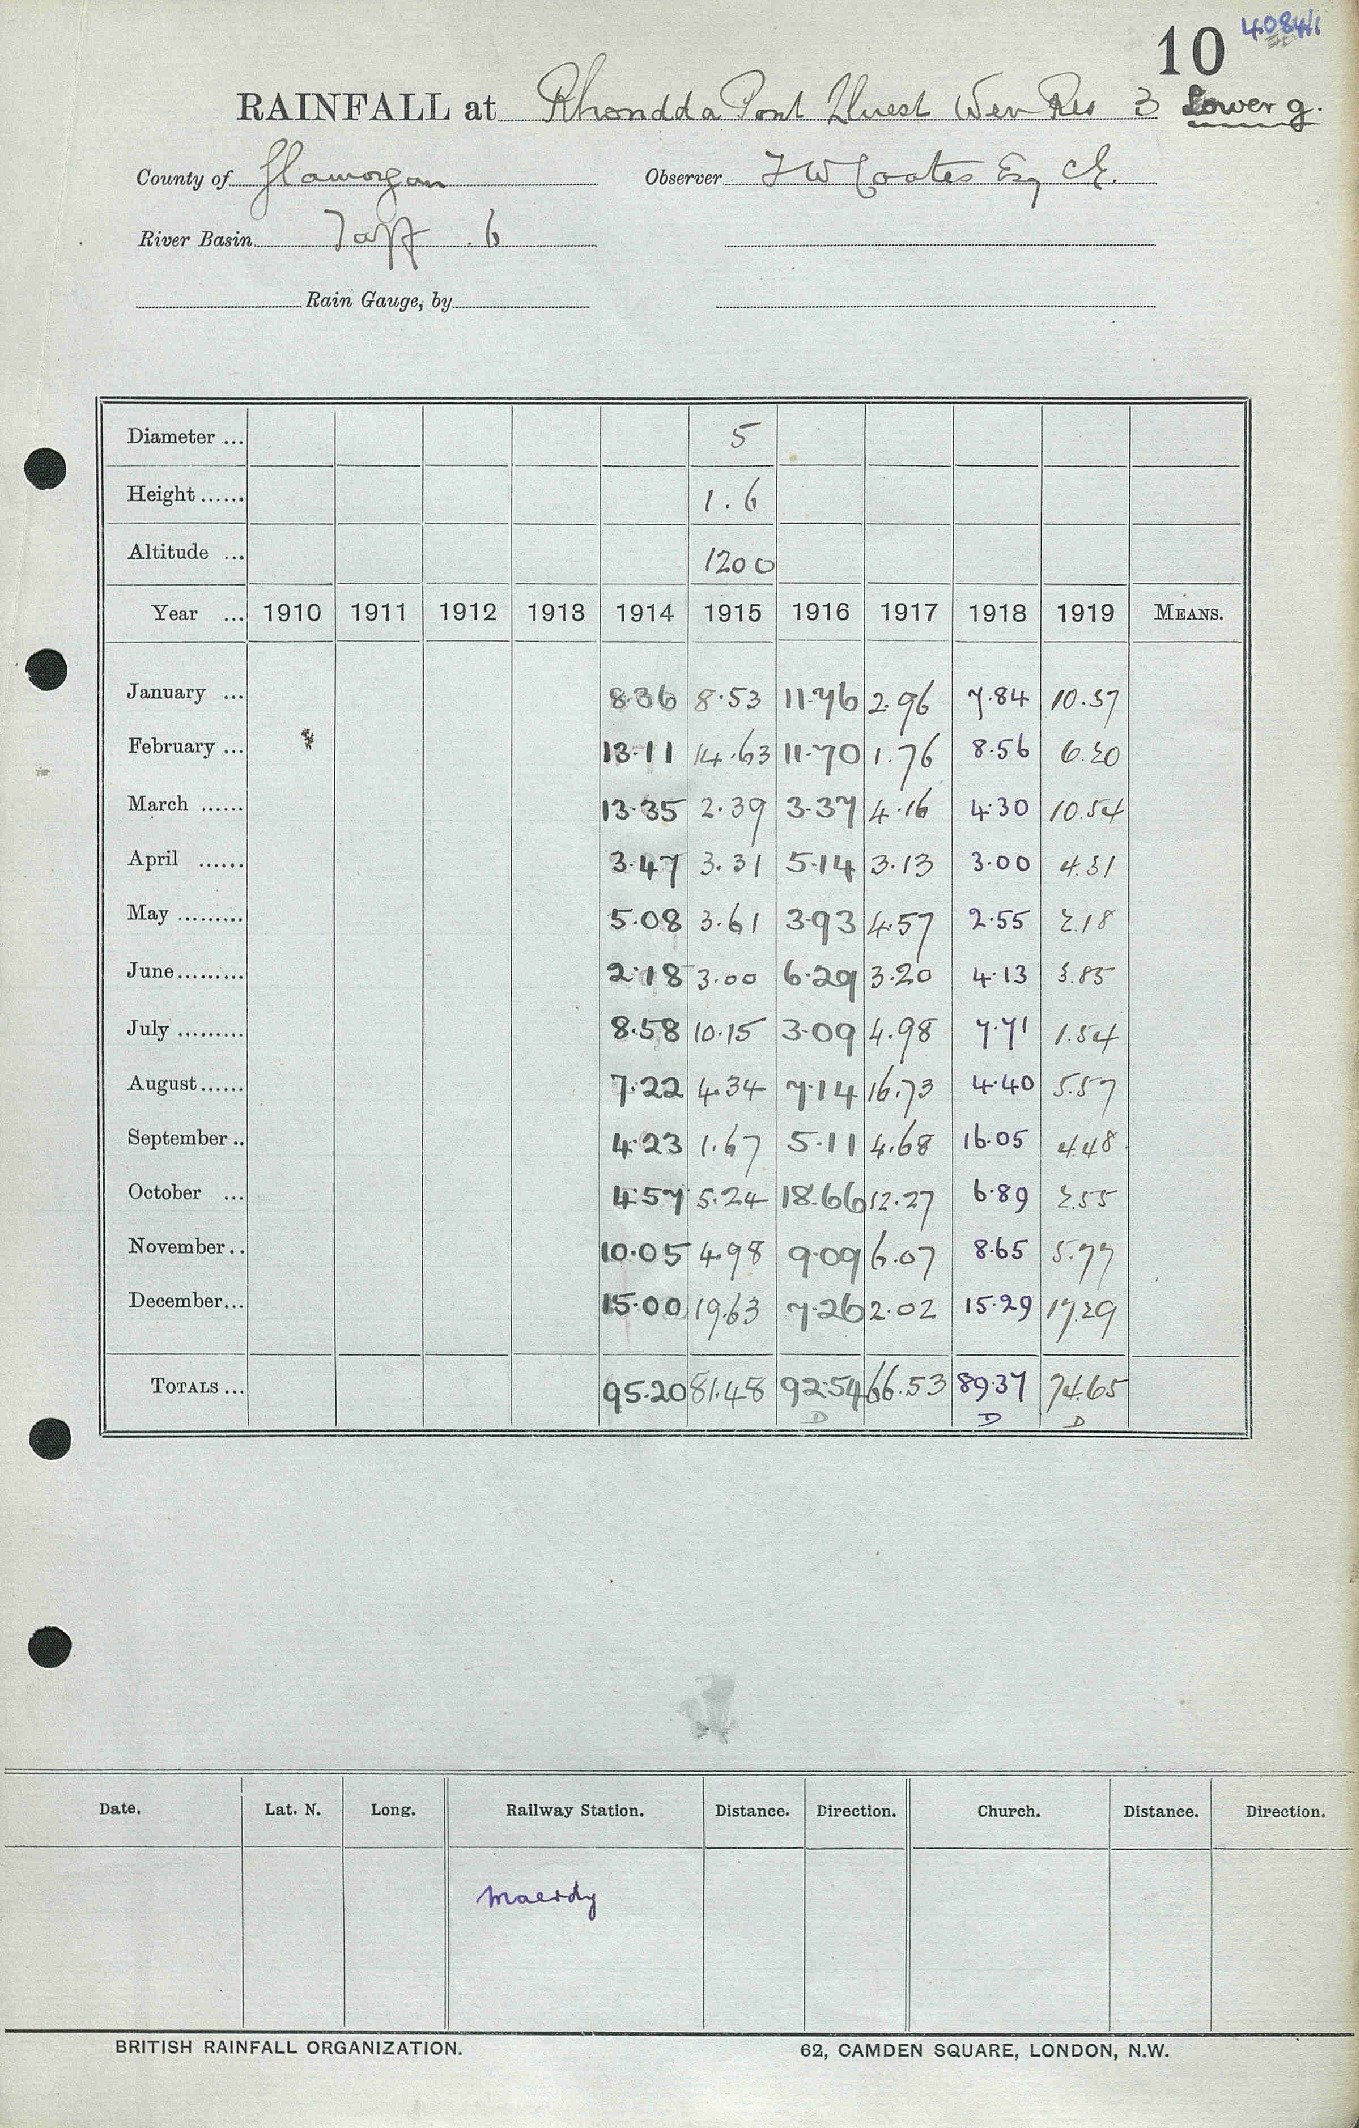 10 4084/1
RAINFALL at Rhondda Pont Lluest Wen Res 3 Lower g.
County of Glamorgan Observer T W Coates Esq CE.
River Basin Taff 6
Rain Gauge, by
Diameter ... 5
Height ...... 1.6
Altitude ... 1200
Year ... 1910 1911 1912 1913 1914 1915 1916 1917 1918 1919 MEANS.
January ... 8.36 8.53 11.76 2.96 7.84 10.37
February ... 13.11 14.63 11.70 1.76 8.56 6.20
March ...... 13.35 2.39 3.37 4.16 4.30 10.54
April ...... 3.47 3.31 5.14 3.13 3.00 4.31
May ......... 5.08 3.61 3.93 4.57 2.55 2.18
June ......... 2.18 3.00 6.29 3.20 4.13 3.85
July ......... 8.58 10.15 3.09 4.98 7.71 1.54
August ...... 7.22 4.34 7.14 16.73 4.40 5.57
September .. 4.23 1.67 5.11 4.68 16.05 4.48
October ... 4.57 5.24 18.66 12.27 6.89 2.55
November .. 10.05 4.98 9.09 6.07 8.65 5.77
December ... 15.00 19.63 7.26 2.02 15.29 17.29
TOTALS ... 95.20 81.48 92.54 66.53 89.37 74.65
D D D
Date. Lat. N. Long. Railway Station. Distance. Direction. Church. Distance. Direction.
Maerdy
BRITISH RAINFALL ORGANIZATION. 62, CAMDEN SQUARE, LONDON, N.W.